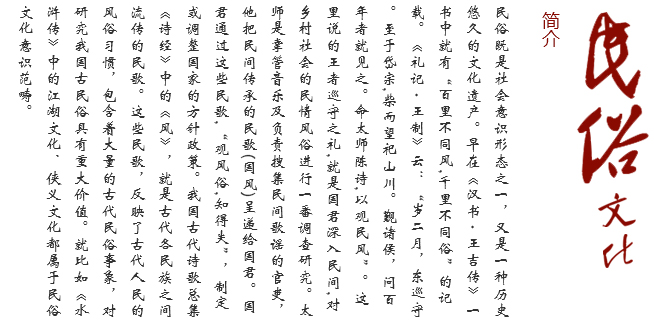 民俗
文化
简介
民俗既是社会意识形态之一，又是一种历史
悠久的文化遗产。早在《汉书·王吉传》一
书中就有“百里不同风,千里不同俗”的记
载。《礼记·王制》云：“岁二月，东巡守
。至于岱宗,柴而望祀山川。觐诸侯，问百
年者就见之。命太师陈诗,以观民风”。这
里说的王者巡守之礼,就是国君深入民间,对
乡村社会的民情风俗进行一番调查研究。太
师是掌管音乐及负责搜集民间歌谣的官吏，
他把民间传承的民歌(国风)呈递给国君。国
君通过这些民歌,“观风俗,知得失”，制定
或调整国家的方针政策。我国古代诗歌总集
《诗经》中的《风》，就是古代各民族之间
流传的民歌。这些民歌，反映了古代人民的
风俗习惯，包含着大量的古代民俗事象，对
研究我国古民俗具有重大价值。就比如《水
浒传》中的江湖文化、侠义文化都属于民俗
文化意识范畴。